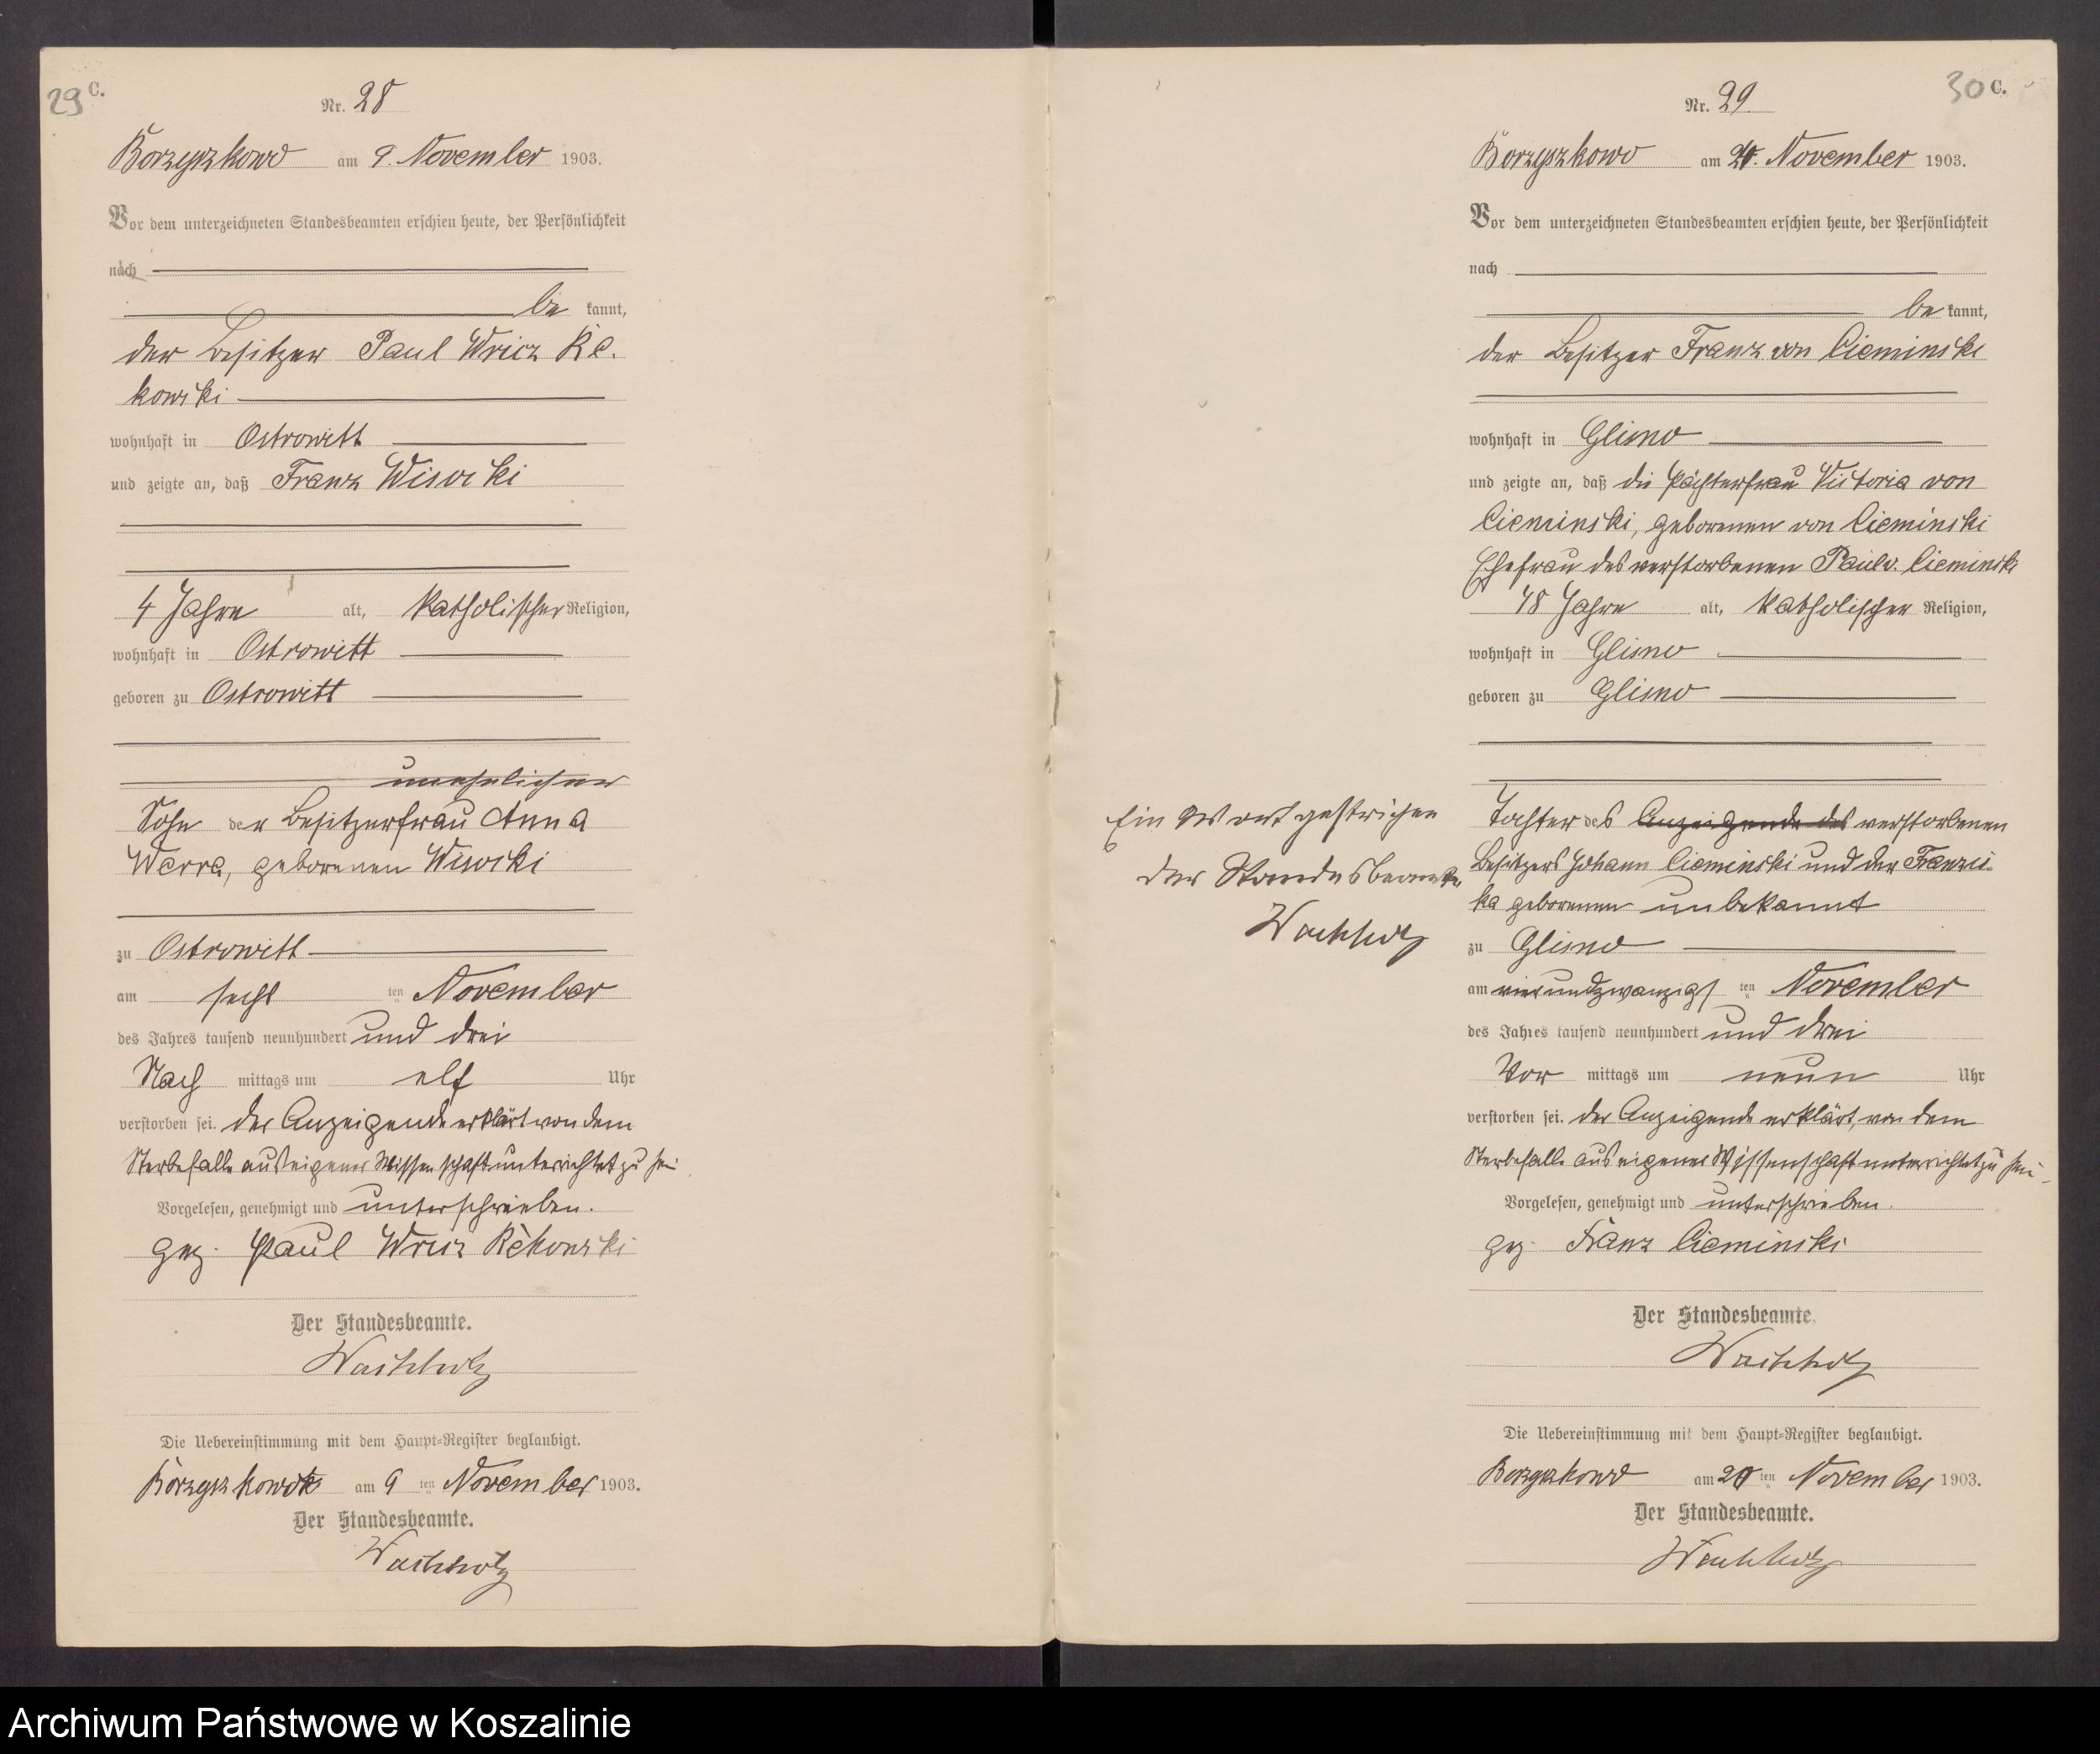 29 C.
Nr. 28
Borzyszkowo am 9. November 1903.
Vor dem unterzeichneten Standesbeamten erschien heute, der Persönlichkeit
nach
be kannt,
der Besitzer Paul Wricz Re-
kowski
wohnhaft in Ostrowitt
und zeigte an, daß Franz Wisocki
4 Jahre alt, katholischer Religion,
wohnhaft in Ostrowitt
geboren zu Ostrowitt
unehelicher
Sohn der Besitzerfrau Anna
Werra, geborenen Wisocki
zu Ostrowitt
am sechs ten November
des Jahres tausend neunhundert und drei
Nach mittags um elf Uhr
verstorben sei. Der Anzeigende erklärt von dem
Sterbefalle aus eigener Wissenschaft unterrichtet zu sei
Vorgelesen, genehmigt und unterschrieben.
gez. Paul Wricz Rekowski
Der Standesbeamte.
Wachholz
Die Uebereinstimmung mit dem Haupt-Register beglaubigt.
Borzyszkowo am 9 ten November 1903.
Der Standesbeamte.
Wachholz
30 C.
Nr. 29
Borzyszkowo am November 1903.
Vor dem unterzeichneten Standesbeamten erschien heute, der Persönlichkeit
nach
be kannt,
der Besitzer Franz von Cieminski
wohnhaft in Glisno
und zeigte an, daß die Pächterfrau Victoria von
Cieminski, geborenen von Cieminski
Ehefrau des verstorbenen Paul v. Cieminski
48 Jahre alt, katholischer Religion,
wohnhaft in Glisno
geboren zu Glisno
Ein Wort gestrichen
Der Standesbeamte
Wachholz
Tochter des Anzeigende des verstorbenen
Besitzers Johann Cieminski und der Franzis-
ka geborenen unbekannt
zu Glisno
am vierundzwanzigs ten November
des Jahres tausend neunhundert und drei
Vor mittags um neun Uhr
verstorben sei. Der Anzeigende erklärt, von dem
Sterbefalle aus eigener Wissenschaft unterrichtet zu sei
Vorgelesen, genehmigt und unterschrieben.
gez. Franz Cieminski
Der Standesbeamte.
Wachholz
Die Uebereinstimmung mit dem Haupt-Register beglaubigt.
Borzyszkowo am ten November 1903.
Der Standesbeamte.
Wachholz
Archiwum Państwowe w Koszalinie